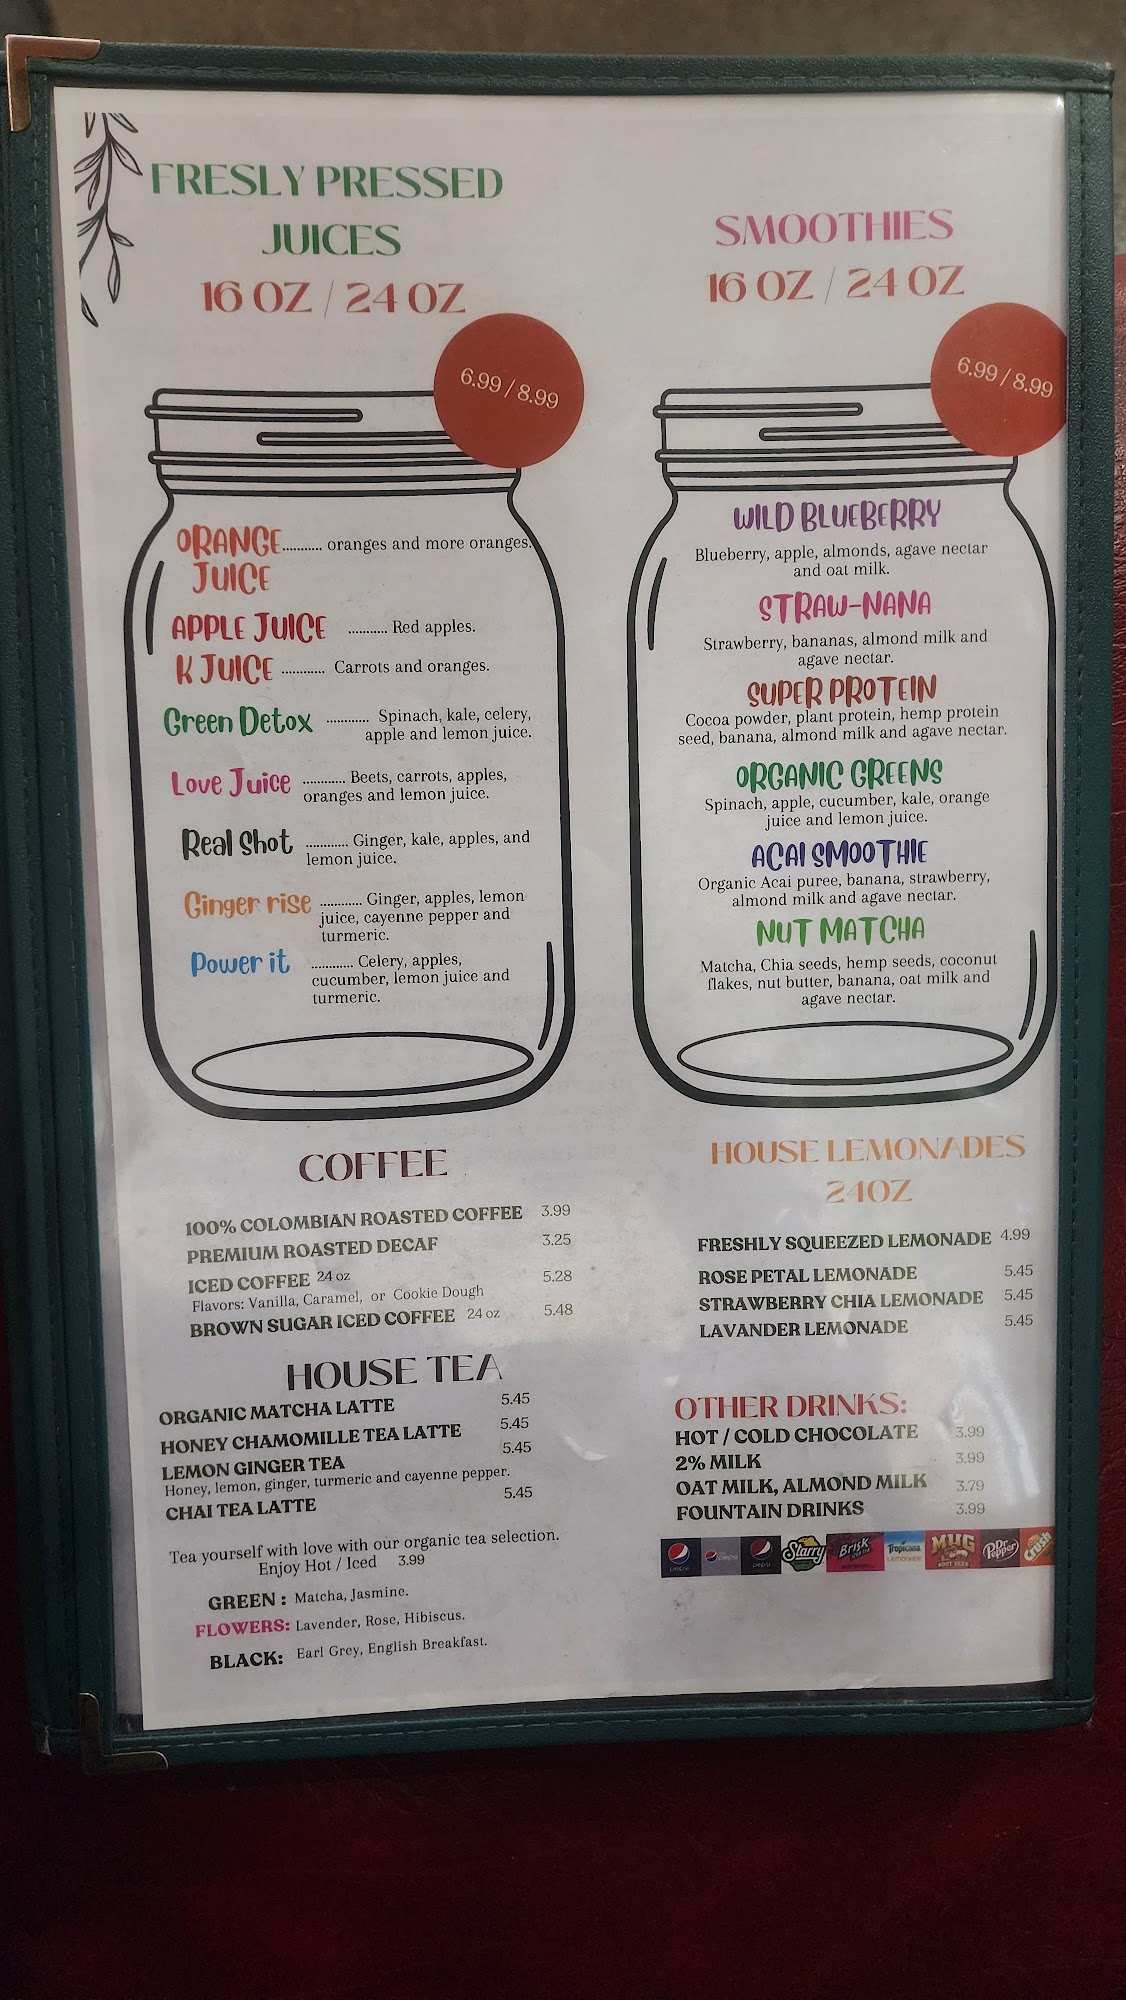 FRESLY PRESSED
JUICES
16 OZ / 24 OZ
6.99 / 8.99
ORANGE
JUICE
........... oranges and more oranges.
APPLE JUICE ........... Red apples.
K JUICE ............ Carrots and oranges.
Green Detox ............ Spinach, kale, celery,
apple and lemon juice.
Love Juice ............ Beets, carrots, apples,
oranges and lemon juice.
Real Shot ............ Ginger, kale, apples, and
lemon juice.
Ginger rise ............ Ginger, apples, lemon
juice, cayenne pepper and
turmeric.
Power it ............ Celery, apples,
cucumber, lemon juice and
turmeric.
SMOOTHIES
16 OZ / 24 OZ
6.99 / 8.99
WILD BLUEBERRY
Blueberry, apple, almonds, agave nectar
and oat milk.
STRAW-NANA
Strawberry, bananas, almond milk and
agave nectar.
SUPER PROTEIN
Cocoa powder, plant protein, hemp protein
seed, banana, almond milk and agave nectar.
ORGANIC GREENS
Spinach, apple, cucumber, kale, orange
juice and lemon juice.
ACAI SMOOTHIE
Organic Acai puree, banana, strawberry,
almond milk and agave nectar.
NUT MATCHA
Matcha, Chia seeds, hemp seeds, coconut
flakes, nut butter, banana, oat milk and
agave nectar.
COFFEE
100% COLOMBIAN ROASTED COFFEE 3.99
PREMIUM ROASTED DECAF 3.25
ICED COFFEE 24 oz 5.28
Flavors: Vanilla, Caramel, or Cookie Dough
BROWN SUGAR ICED COFFEE 24 oz 5.48
HOUSE TEA
ORGANIC MATCHA LATTE 5.45
HONEY CHAMOMILLE TEA LATTE 5.45
LEMON GINGER TEA 5.45
Honey, lemon, ginger, turmeric and cayenne pepper.
CHAI TEA LATTE 5.45
Tea yourself with love with our organic tea selection.
Enjoy Hot / Iced 3.99
GREEN : Matcha, Jasmine.
FLOWERS: Lavender, Rose, Hibiscus.
BLACK: Earl Grey, English Breakfast.
HOUSE LEMONADES
24OZ
FRESHLY SQUEEZED LEMONADE 4.99
ROSE PETAL LEMONADE 5.45
STRAWBERRY CHIA LEMONADE 5.45
LAVANDER LEMONADE 5.45
OTHER DRINKS:
HOT / COLD CHOCOLATE 3.99
2% MILK 3.99
OAT MILK, ALMOND MILK 3.79
FOUNTAIN DRINKS 3.99
pepsi pepsi pepsi Starry Brisk Tropicana LEMONADE MUG ROOT BEER Dr Pepper Crush